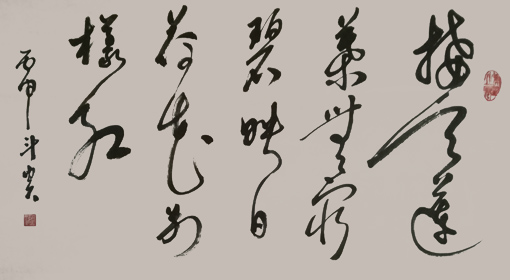 接天莲
叶无穷
碧映日
荷花别
样红
丙申 斗实